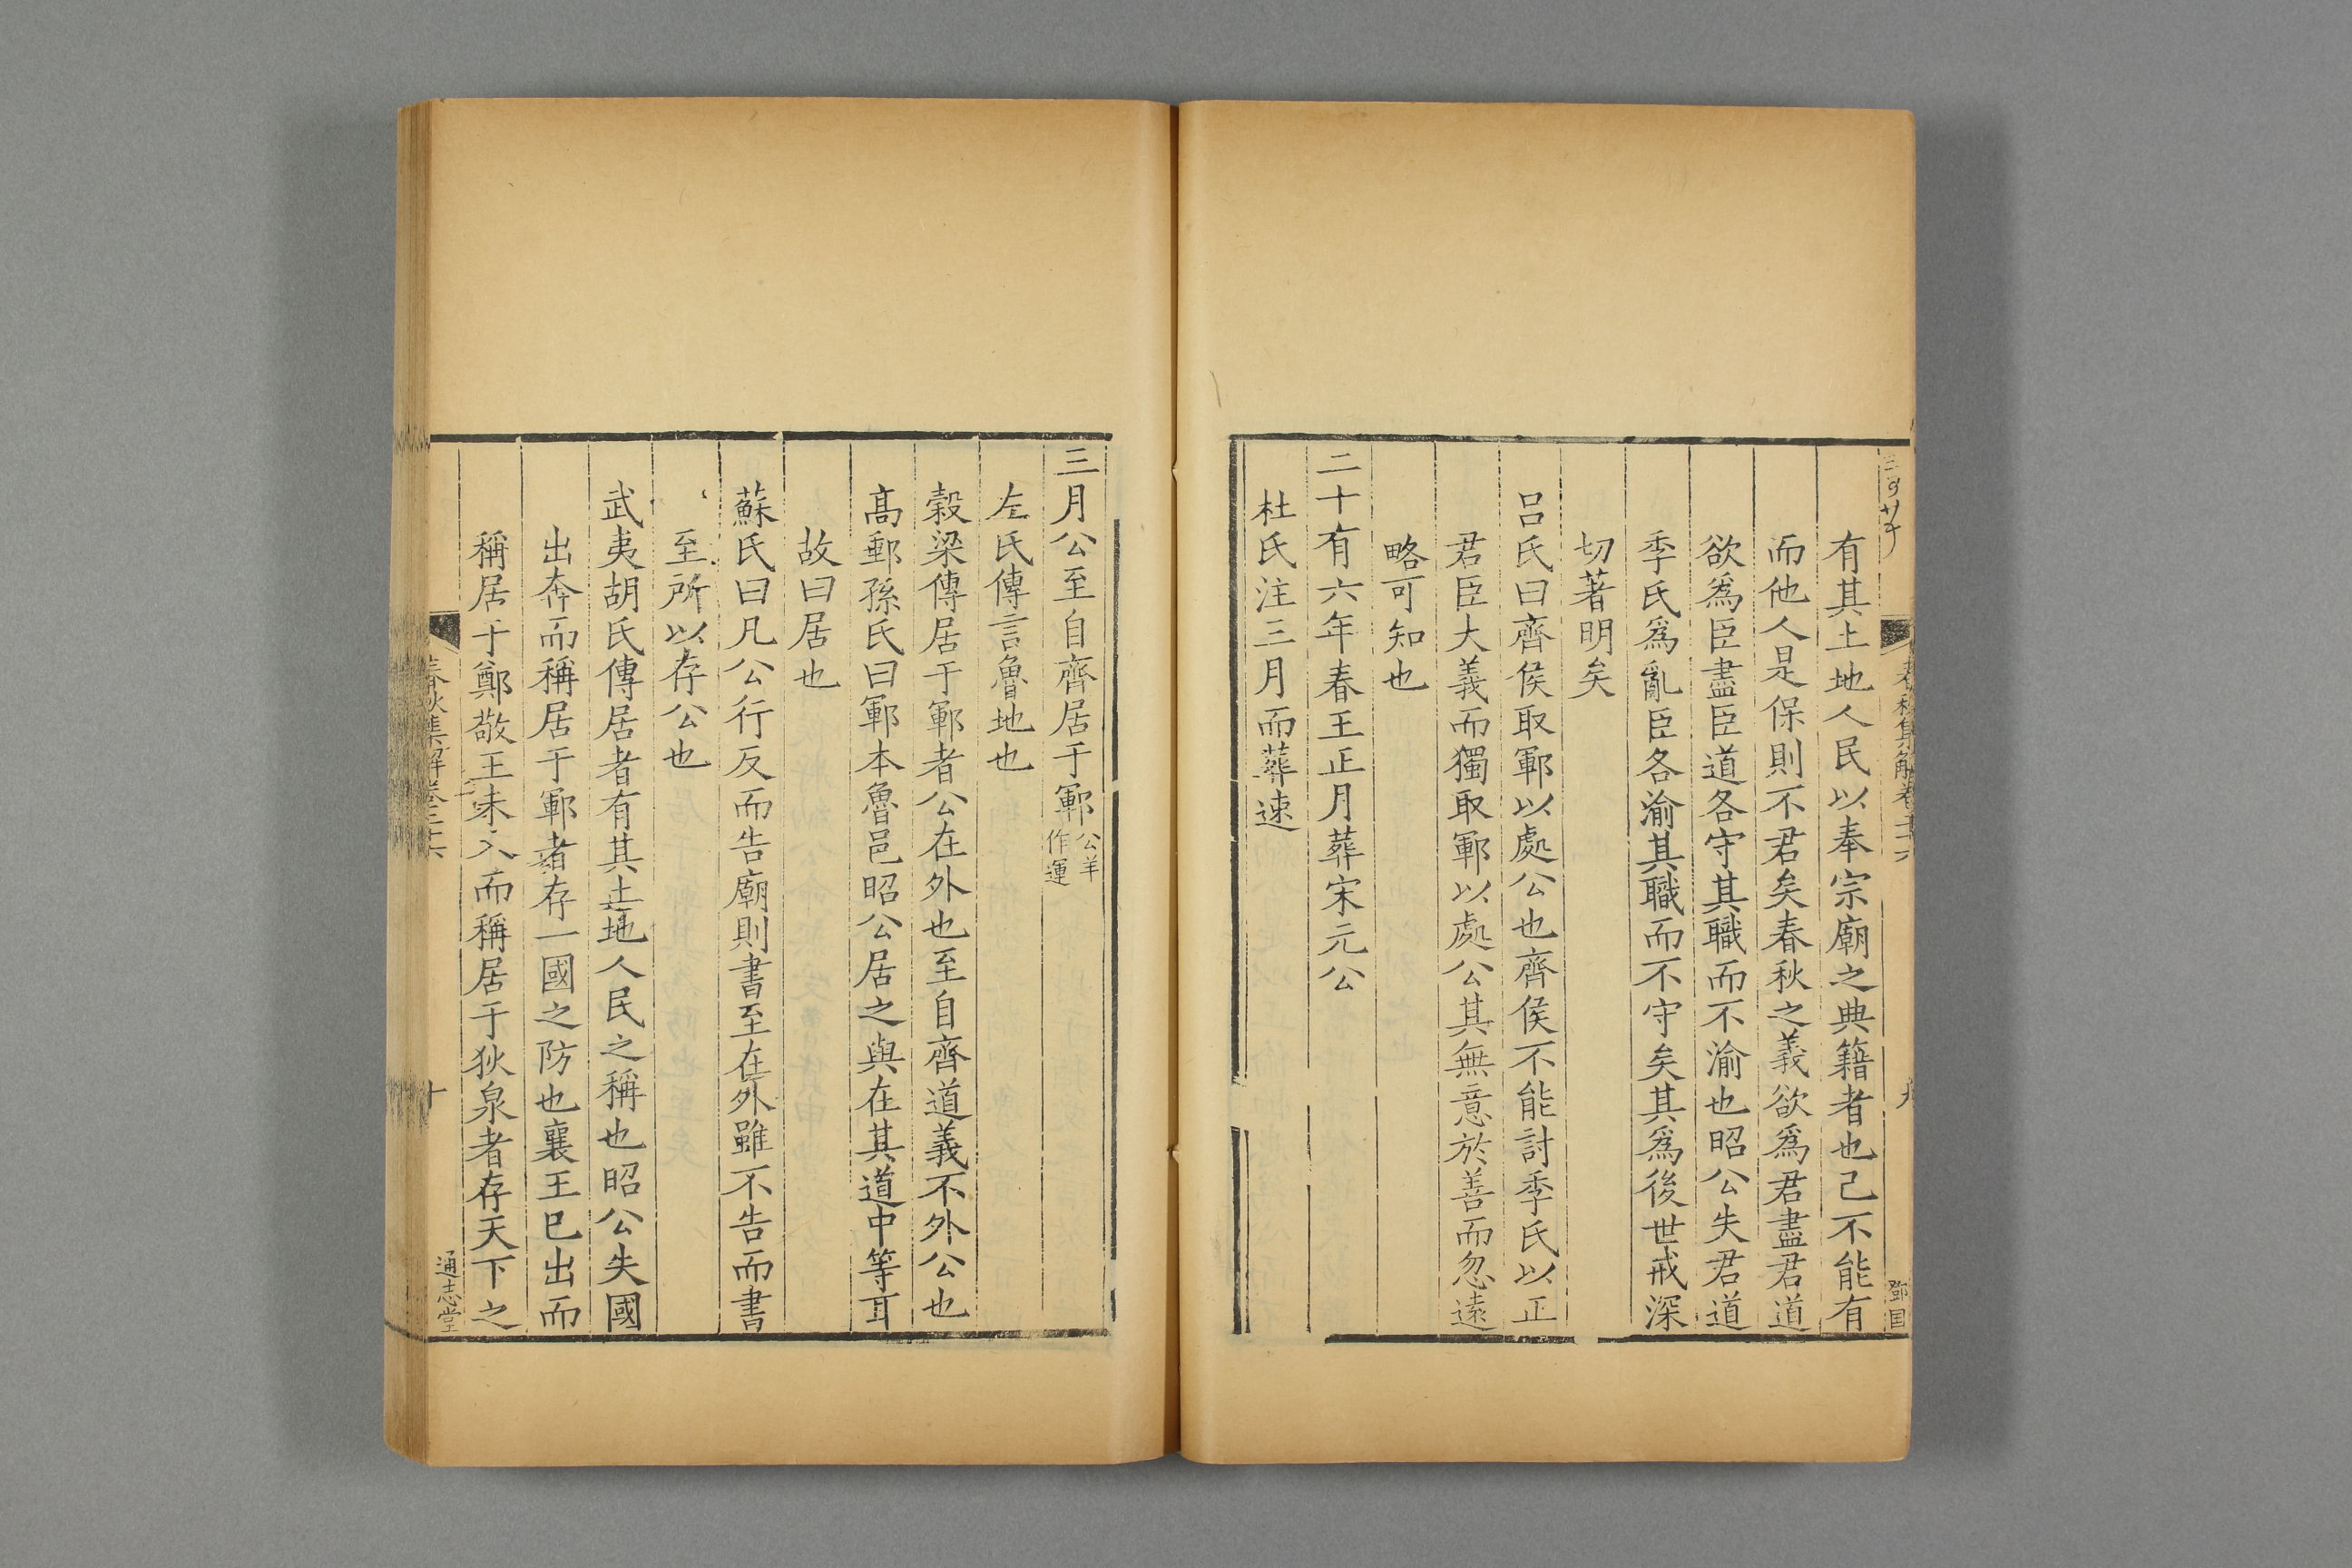 有其土地人民以奉宗廟之典籍者也己不能有
而他人是保則不君矣春秋之義欲爲君盡君道
欲爲臣盡臣道各守其職而不渝也昭公失君道
季氏爲亂臣各渝其職而不守矣其爲後世戒深
切著明矣
呂氏曰齊侯取鄆以處公也齊侯不能討季氏以正
君臣大義而獨取鄆以處公其無意於善而忽遠
略可知也
二十有六年春王正月葬宋元公
杜氏注三月而葬速
三月公至自齊居于鄆公羊
作運
左氏傳言魯地也
穀梁傳居于鄆者公在外也至自齊道義不外公也
髙郵孫氏曰鄆本魯邑昭公居之與在其道中等耳
故曰居也
蘇氏曰凡公行反而告廟則書至在外雖不告而書
至所以存公也
武夷胡氏傳居者有其土地人民之稱也昭公失國
出奔而稱居于鄆者存一國之防也襄王已出而
稱居于鄭敬王未入而稱居于狄泉者存天下之
春秋集解卷二十六
十
通志堂